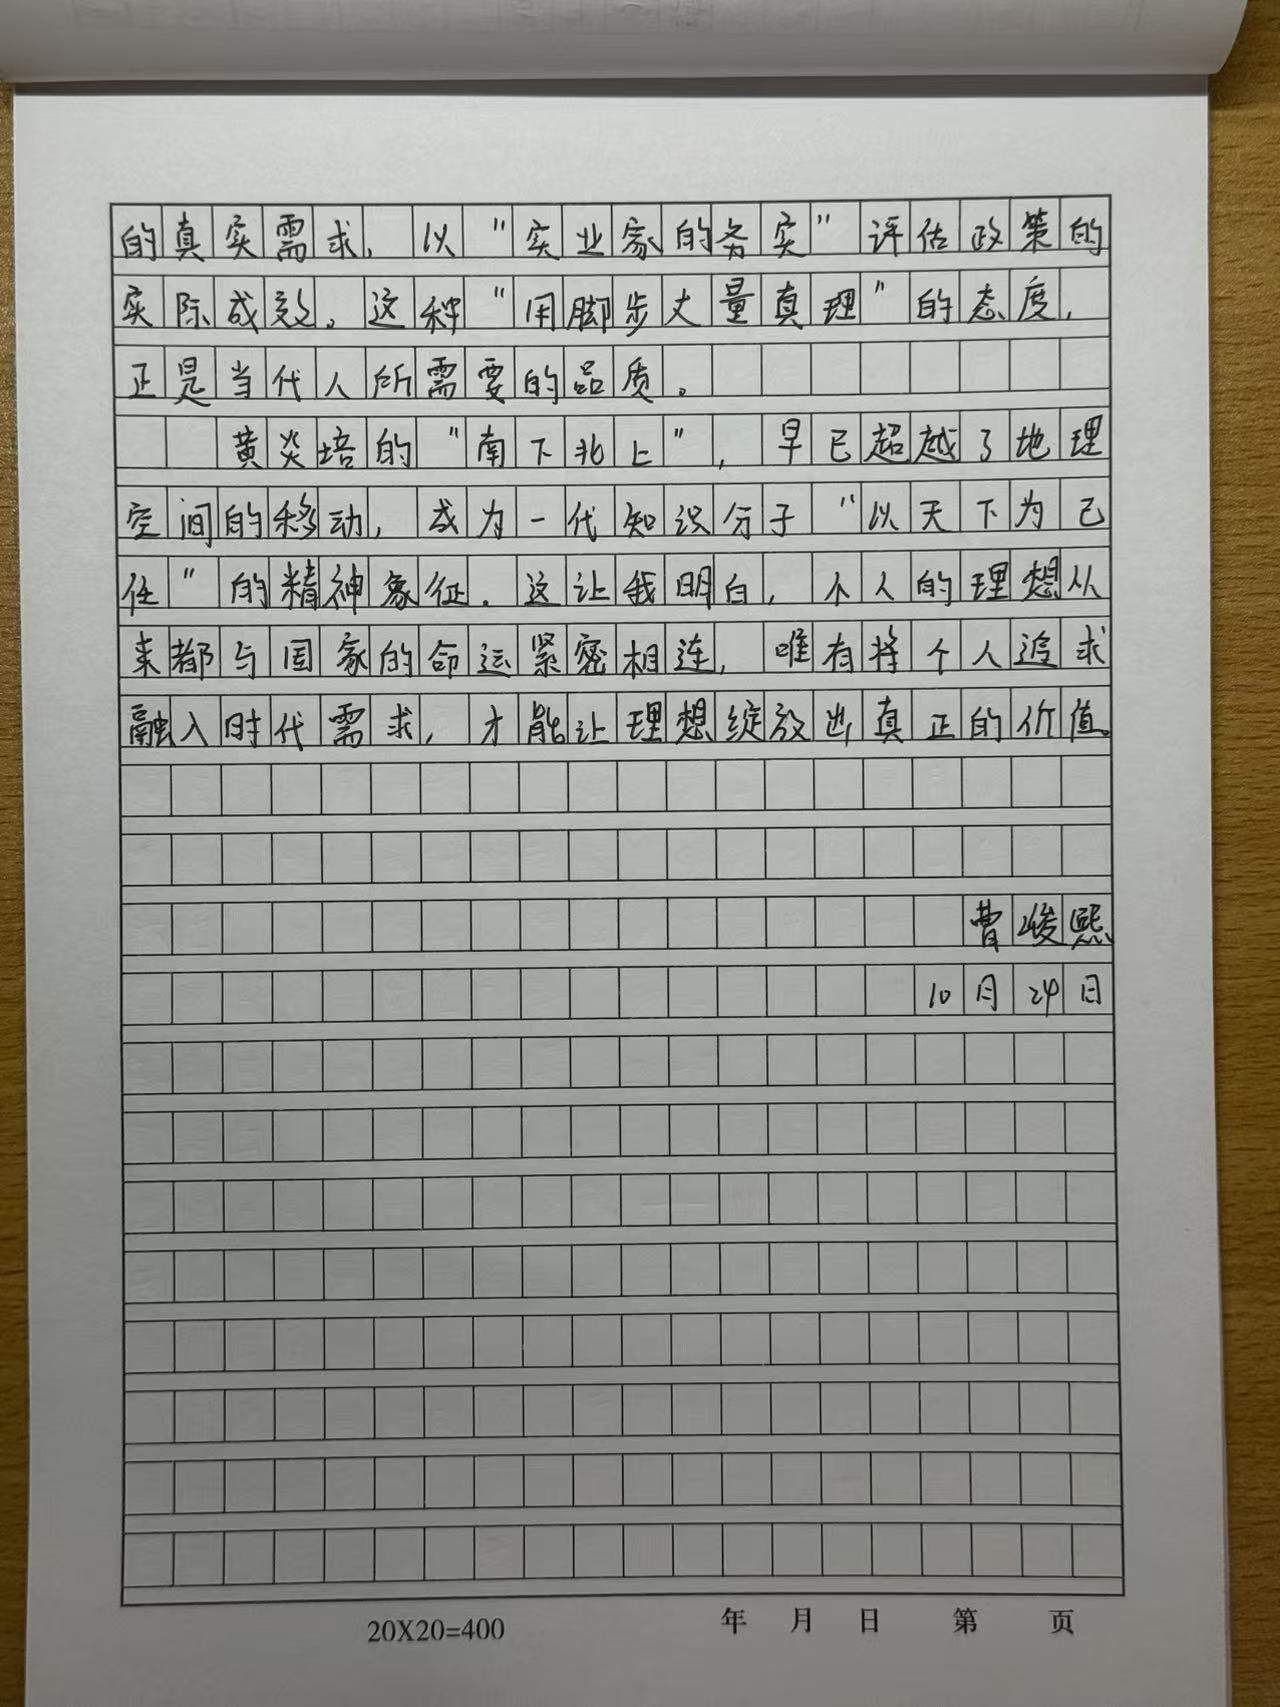 的真实需求，以“实业家的务实”评估政策的
实际成效。这种“用脚步丈量真理”的态度，
正是当代人所需要的品质。
黄炎培的“南下北上”，早已超越了地理
空间的移动，成为一代知识分子“以天下为己
任”的精神象征。这让我明白，个人的理想从
来都与国家的命运紧密相连，唯有将个人追求
融入时代需求，才能让理想绽放出真正的价值。
曹峻熙
10月24日
20X20=400 年 月 日 第 页